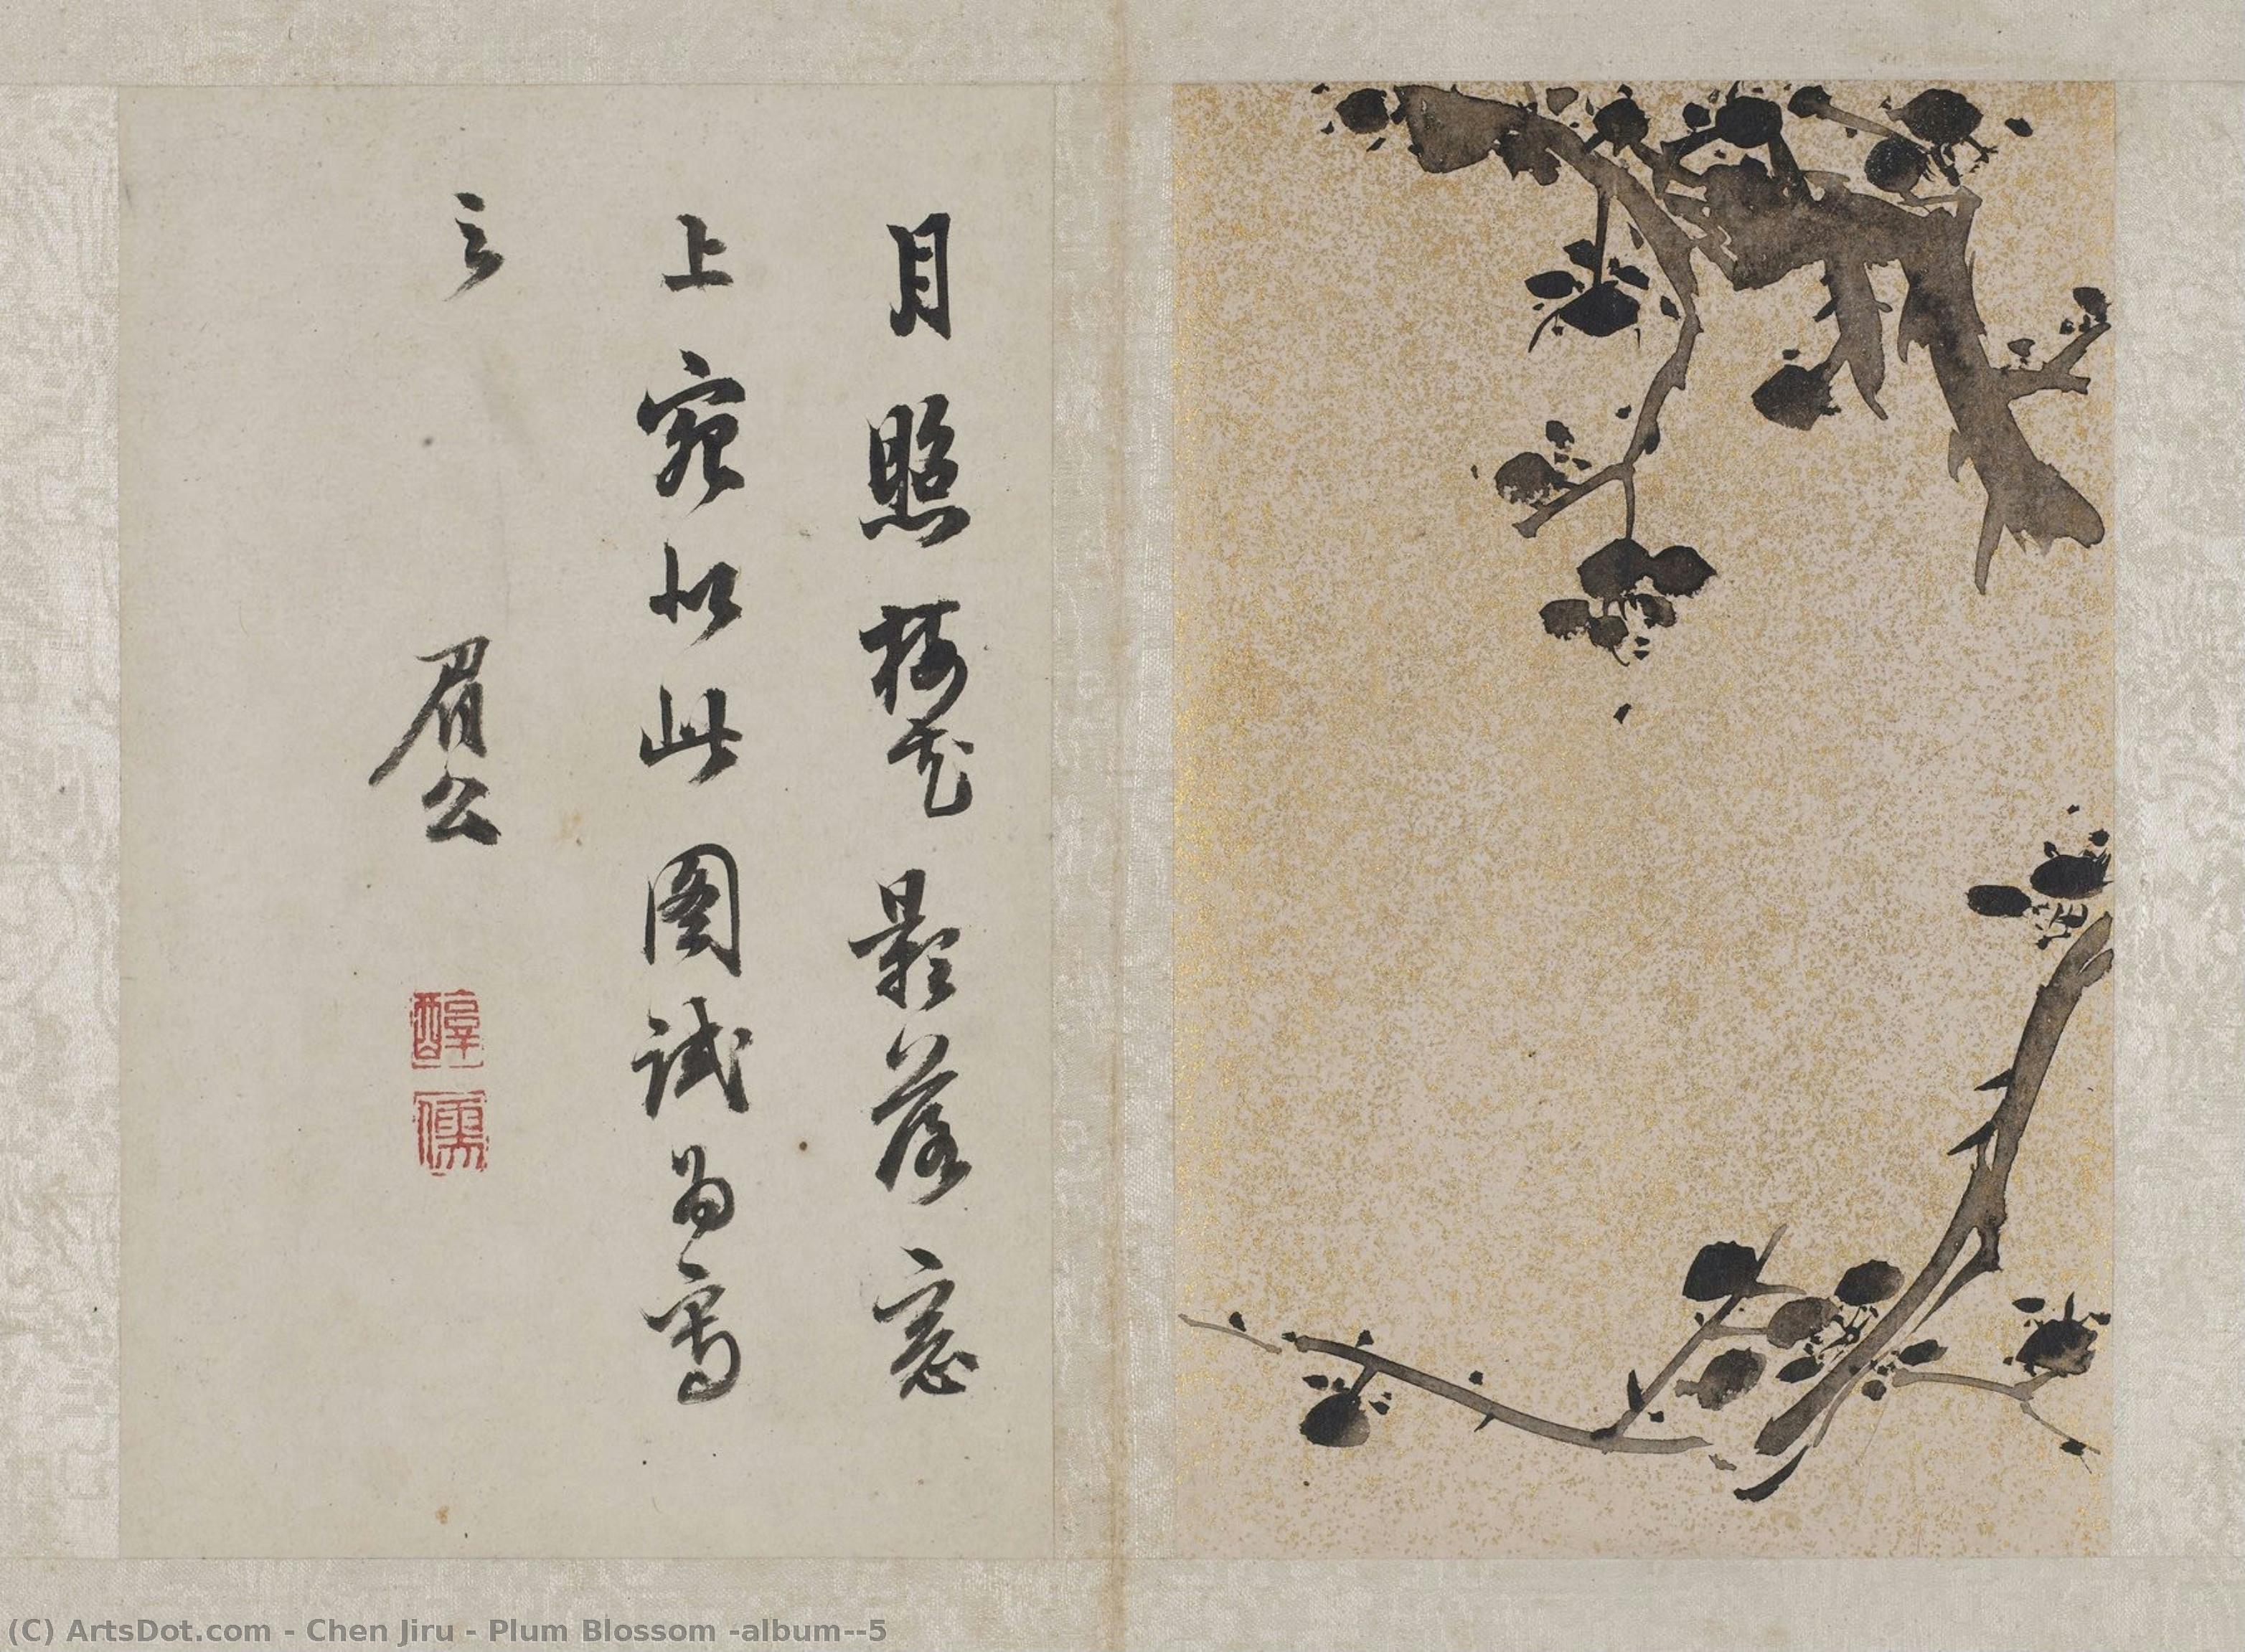 月照梅花影落窓
上宛似此图試為寫
之
眉公
醇
儒
(C) ArtsDot.com - Chen Jiru - Plum Blossom -album--5